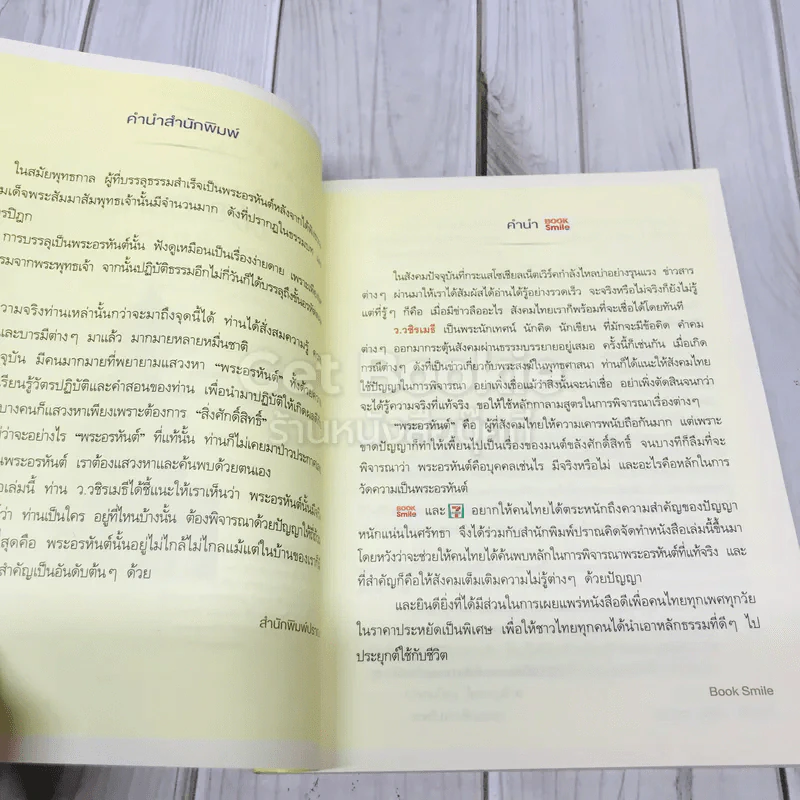 คำนำสำนักพิมพ์
ในสมัยพุทธกาล ผู้ที่บรรลุธรรมสำเร็จเป็นพระอรหันต์หลังจากได้
มเด็จพระสัมมาสัมพุทธเจ้านั้นมีจำนวนมาก ดังที่ปรากฏใน
รปิฎก
การบรรลุเป็นพระอรหันต์นั้น ฟังดูเหมือนเป็นเรื่องง่ายดาย เพราะ
รมจากพระพุทธเจ้า จากนั้นปฏิบัติธรรมอีกไม่กี่วันก็ได้บรรลุถึงขั้น
วามจริงท่านเหล่านั้นกว่าจะมาถึงจุดนี้ได้ ท่านได้สั่งสมความรู้
และบารมีต่างๆ มาแล้ว มากมายหลายหมื่นชาติ
จุบัน มีคนมากมายที่พยายามแสวงหา “พระอรหันต์” ทั้งด้วย
เรียนรู้วัตรปฏิบัติและคำสอนของท่าน เพื่อนำมาปฏิบัติให้เกิด
บางคนก็แสวงหาเพียงเพราะต้องการ “สิ่งศักดิ์สิทธิ์”
ว่าจะอย่างไร “พระอรหันต์” ที่แท้นั้น ท่านก็ไม่เคยมาป่าวประกาศ
นพระอรหันต์ เราต้องแสวงหาและค้นพบด้วยตนเอง
อเล่มนี้ ท่าน ว.วชิรเมธีได้ชี้แนะให้เราเห็นว่า พระอรหันต์นั้น
ว่า ท่านเป็นใคร อยู่ที่ไหนบ้างนั้น ต้องพิจารณาด้วยปัญญา
สุดคือ พระอรหันต์นั้นอยู่ไม่ใกล้ไม่ไกลแม้แต่ในบ้านของเรา
สำคัญเป็นอันดับต้นๆ ด้วย
สำนักพิมพ์ปราณ
คำนำ BOOK Smile
ในสังคมปัจจุบันที่กระแสโซเชียลเน็ตเวิร์คกำลังไหลบ่าอย่างรุนแรง ข่าวสาร
ต่างๆ ผ่านมาให้เราได้สัมผัสได้อ่านได้รู้อย่างรวดเร็ว จะจริงหรือไม่จริงก็ยังไม่รู้
แต่ที่รู้ๆ ก็คือ เมื่อมีข่าวลืออะไร สังคมไทยเราก็พร้อมที่จะเชื่อได้โดยทันที
ว.วชิรเมธี เป็นพระนักเทศน์ นักคิด นักเขียน ที่มักจะมีข้อคิด คำคม
ต่างๆ ออกมากระตุ้นสังคมผ่านธรรมบรรยายอยู่เสมอ ครั้งนี้ก็เช่นกัน เมื่อเกิด
กรณีต่างๆ ดังที่เป็นข่าวเกี่ยวกับพระสงฆ์ในพุทธศาสนา ท่านก็ได้แนะให้สังคมไทย
ใช้ปัญญาในการพิจารณา อย่าเพิ่งเชื่อแม้ว่าสิ่งนั้นจะน่าเชื่อ อย่าเพิ่งตัดสินจนกว่า
จะได้รู้ความจริงที่แท้จริง ขอให้ใช้หลักกาลามสูตรในการพิจารณาเรื่องต่างๆ
“พระอรหันต์” คือ ผู้ที่สังคมไทยให้ความเคารพนับถือกันมาก แต่เพราะ
ขาดปัญญาก็ทำให้เพี้ยนไปเป็นเรื่องของมนต์ขลังศักดิ์สิทธิ์ จนบางทีก็ลืมที่จะ
พิจารณาว่า พระอรหันต์คือบุคคลเช่นไร มีจริงหรือไม่ และอะไรคือหลักในการ
วัดความเป็นพระอรหันต์
BOOK Smile และ 7 ELEVEN อยากให้คนไทยได้ตระหนักถึงความสำคัญของปัญญา
หนักแน่นในศรัทธา จึงได้ร่วมกับสำนักพิมพ์ปราณคิดจัดทำหนังสือเล่มนี้ขึ้นมา
โดยหวังว่าจะช่วยให้คนไทยได้ค้นพบหลักในการพิจารณาพระอรหันต์ที่แท้จริง และ
ที่สำคัญก็คือให้สังคมเติมเต็มความไม่รู้ต่างๆ ด้วยปัญญา
และยินดียิ่งที่ได้มีส่วนในการเผยแพร่หนังสือดีเพื่อคนไทยทุกเพศทุกวัย
ในราคาประหยัดเป็นพิเศษ เพื่อให้ชาวไทยทุกคนได้นำเอาหลักธรรมที่ดีๆ ไป
ประยุกต์ใช้กับชีวิต
Book Smile